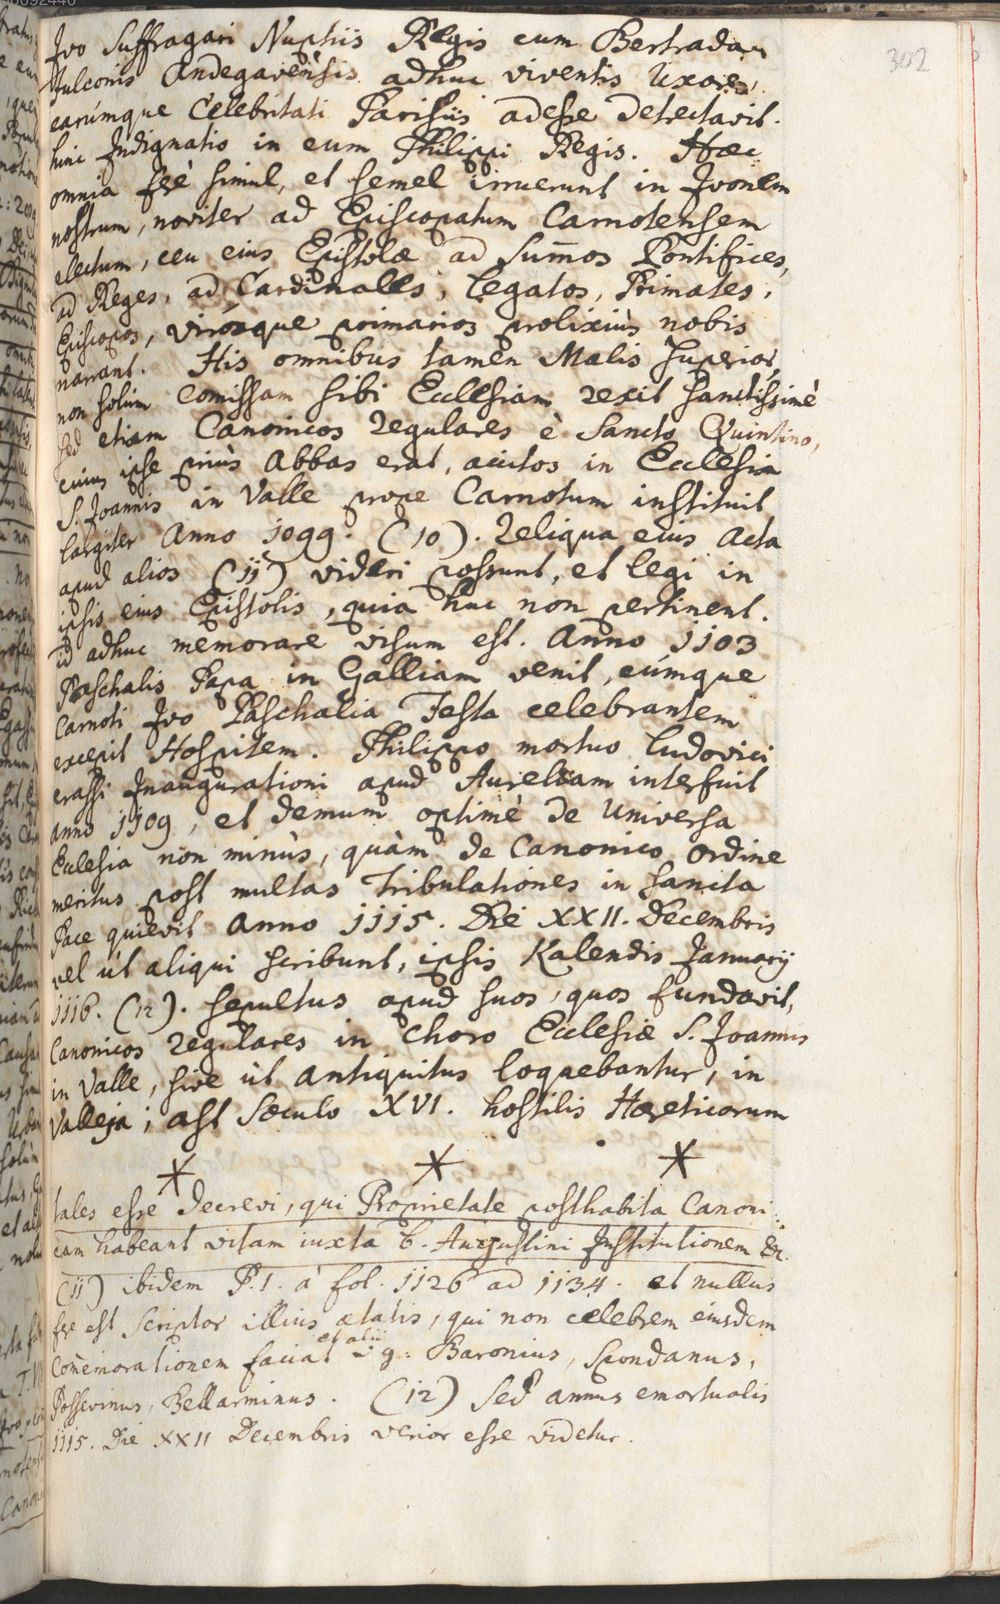 302
Ivo Suffragari Nuptiis Regis cum Bertrada
Fulconis Andegavensis adhuc viventis Uxore,
earúmque Celebritati Parisiis adesse detrectavit.
hinc Indignatio in eum Philippi Regis. Haec
omnia ferè simul, et semel irruerunt in Ivonem
nostrum, noviter ad Episcopatum Carnotensem
electum, ceu eius Epistolæ ad Sum̄os Pontifices,
ad Reges, ad Cardinales, Legatos, Primates,
Episcopos, virósque primarios prolixiùs nobis
narrant. His omnibus tamen Malis Superior,
non solùm Comissam sibi Ecclesiam rexit sanctissimè
sed etiam Canonicos Regulares è Sancto Quintino,
cuius ipse priùs Abbas erat, acitos in Ecclesia
S. Joannis in Valle prope Carnotum instituit
largiter Anno 1099. (10). Reliqua eius Acta
apud alios (11) videri possunt, et legi in
ipsis eius Epistolis, quia huc non pertinent.
id adhuc memorare visum est. Anno 1103
Paschalis Papa in Galliam venit, eúmque
Carnoti Ivo Paschalia Festa celebrantem
excepit Hospitem. Philippo mortuo Ludovici
crassi Inaugurationi apud Aureliam interfuit
anno 1109, et demum optimè de Universa
Ecclesia non minùs, quàm de Canonico Ordine
meritus post multas Tribulationes in sancta
Pace quievit Anno 1115. Die XXII. Decembris
vel út aliqui scribunt, ipsis Kalendis Januarij
1116. (12). Sepultus apud suos, quos fundavit,
Canonicos Regulares in Choro Ecclesiæ S. Joannis
in Valle, sive út Antiquitus loquebantur, in
Valleja; ast Sæculo XVI. hostilis Hæreticorum
* * *
tales esse decrevi, qui Proprietate posthabita Canoni:
cam habeant vitam iuxta b. Augustini Institutionem &c.
(11) ibidem P. 1. à fol. 1126 ad 1134. et nullus
fere est Scriptor illius ætatis, qui non celebrem eiusdem
Com̄emorationem faciat et alii vg: Baronius, Spondanus,
Possevinus, Bellarminus. (12) Sed annus emortualis
1115. Die XXII Decembris verior esse videtur.